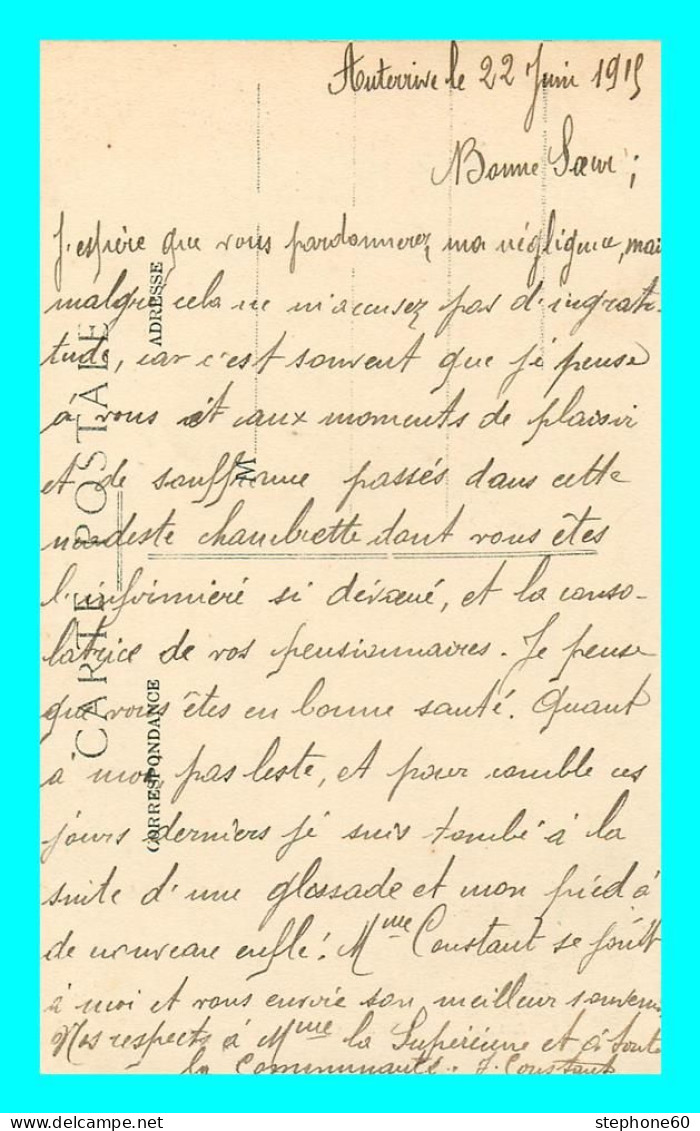 Auterrive le 22 Juin 1915
Bonne Sœur ;
J'espère que vous pardonnerez, ma négligence, mais
malgré cela ne m'accusez pas d'ingrati-
tude, car c'est souvent que je pense
à vous et aux moments de plaisir
et de souffrance passés dans cette
modeste chambrette dont vous êtes
l'infirmière si dévoué, et la conso-
latrice de vos pensionnaires. Je pense
que vous êtes en bonne santé. Quant
à moi, pas leste, et pour comble ces
jours derniers je suis tombé à la
suite d'une glissade et mon pied à
de nouveau enflé! Mme Constant se joint
à moi et vous envoie son meilleur souvenir
Nos respects à Mme la Supérieure et à toute
la communauté. J. Constant
CARTE POSTALE
CORRESPONDANCE
ADRESSE
M
stephone60